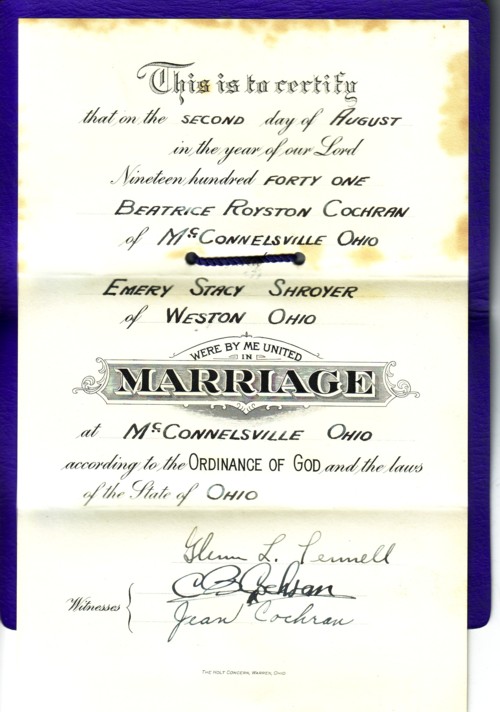 This is to certify
that on the SECOND day of AUGUST
in the year of our Lord
Nineteen hundred FORTY ONE
BEATRICE ROYSTON COCHRAN
of McCONNELSVILLE OHIO
EMERY STACY SHROYER
of WESTON OHIO
WERE BY ME UNITED
IN
MARRIAGE
at McCONNELSVILLE OHIO
according to the ORDINANCE OF GOD and the laws
of the State of OHIO
Glenn L. Pennell
C B Cochran
Witnesses
Jean Cochran
THE HOLT CONCERN, WARREN, OHIO